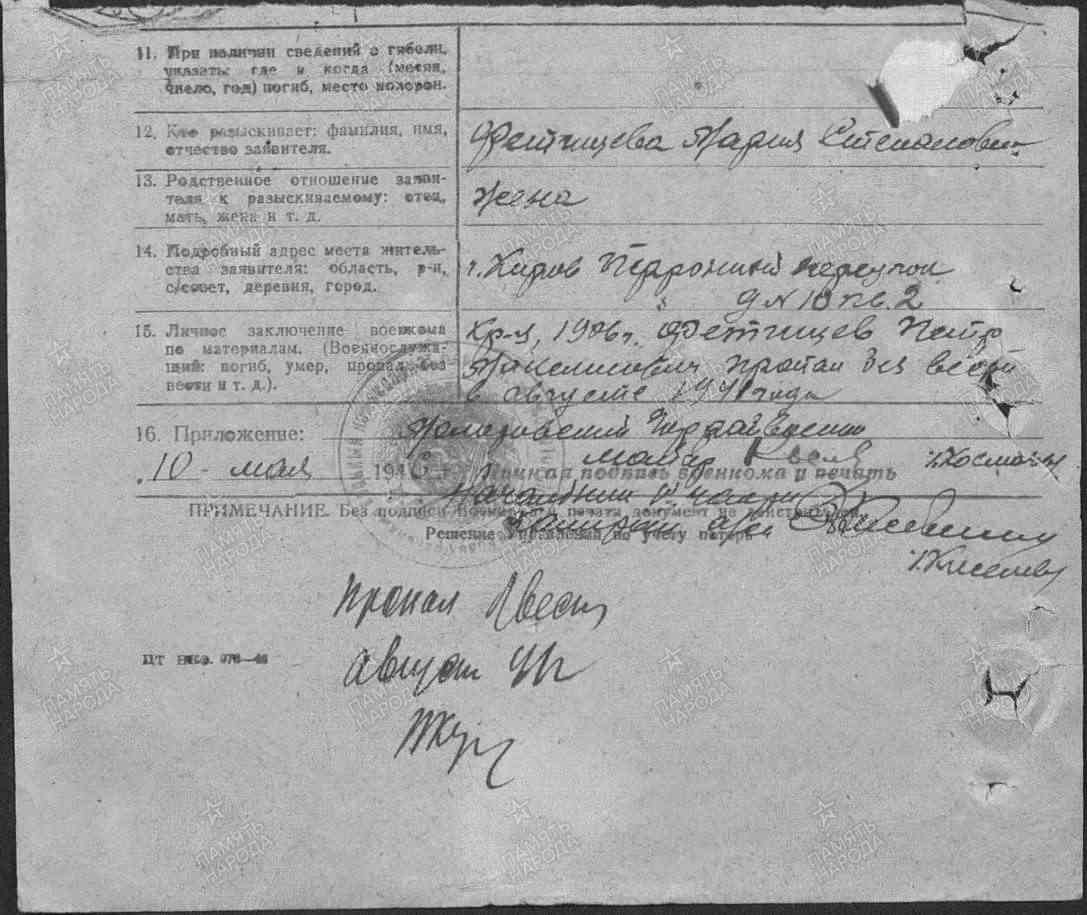 11. При наличии сведений о гибели,
указать: где и когда (месяц,
число, год) погиб, место похорон.
12. Кто разыскивает: фамилия, имя,
отчество заявителя.
Фетищева Мария Степановна
13. Родственное отношение заяви-
теля к разыскиваемому: отец,
мать, жена и т. д.
Жена
14. Подробный адрес места житель-
ства заявителя: область, р-н,
с/совет, деревня, город.
г. Киров Перронный переулок
д N 10 кв. 2
15. Личное заключение военкома
по материалам. (Военнослужа-
щий: погиб, умер, пропал без
вести и т. д.).
Кр-ц, 1906 г. Фетищев Петр
пропал без вести
в августе 1941 года
16. Приложение:
10 - мая 1946 г.
Личная подпись военкома и печать
майор
Начальник части
ПРИМЕЧАНИЕ. Без подписи военкома и печати документ не действителен.
Капитан а/сл
Решение Управления по учету потерь
/Киселев/
Пропал б/вести
август 41 г
ПАМЯТЬ
НАРОДА